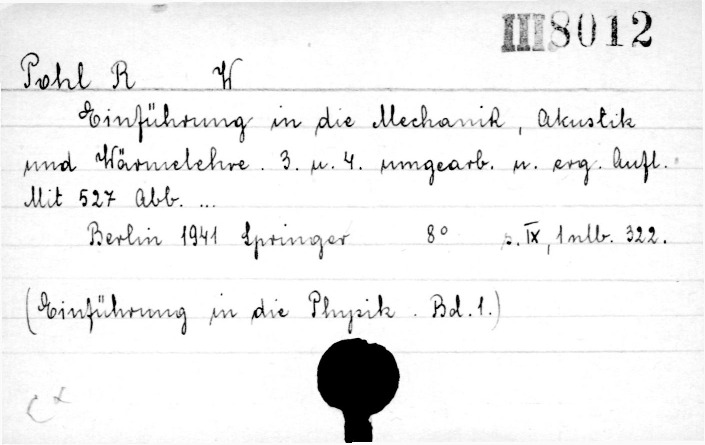 III 8012
Pohl R W
Einführung in die Mechanik, Akustik
und Wärmelehre. 3. u. 4. umgearb. u. erg. Aufl.
Mit 527 Abb. ...
Berlin 1941 Springer 8° s. IX, 1 nlb. 322.
(Einführung in die Physik. Bd. 1.)